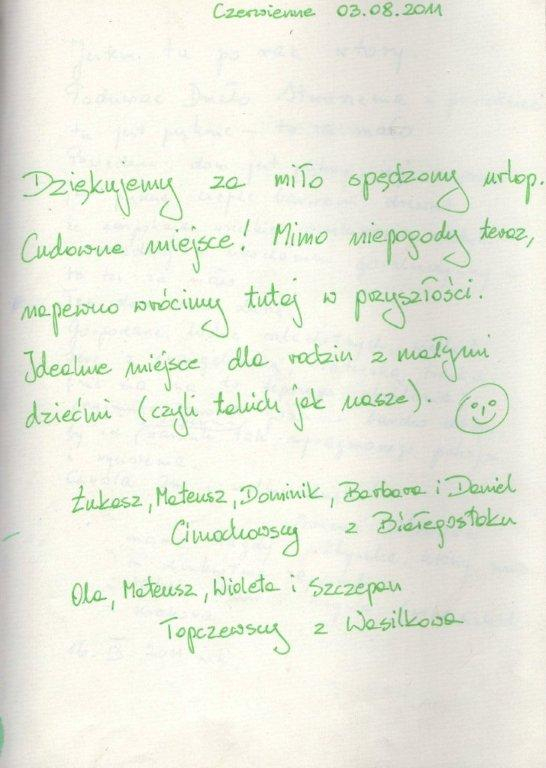 Czerwienne 03.08.2011
Dziękujemy za miło spędzony urlop.
Cudowne miejsce! Mimo niepogody teraz,
napewno wrócimy tutaj w przyszłości.
Idealne miejsce dla rodzin z małymi
dziećmi (czyli takich jak nasze).
Łukasz, Mateusz, Dominik, Barbara i Daniel
Cimochowscy z Białegostoku
Ola, Mateusz, Wioleta i Szczepan
Topczewscy z Wasilkowa